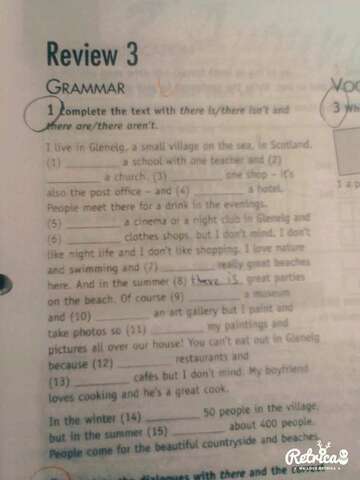 Review 3
GRAMMAR
1 Complete the text with there is/there isn't and
there are/there aren't.
I live in Glenelg, a small village on the sea, in Scotland.
(1) __________ a school with one teacher and (2)
__________ a church. (3) __________ one shop – it's
also the post office – and (4) __________ a hotel.
People meet there for a drink in the evenings.
(5) __________ a cinema or a night club in Glenelg and
(6) __________ clothes shops, but I don't mind. I don't
like night life and I don't like shopping. I love nature
and swimming and (7) __________ really great beaches
here. And in the summer (8) there is great parties
on the beach. Of course (9) __________ a museum
and (10) __________ an art gallery but I paint and
take photos so (11) __________ my paintings and
pictures all over our house! You can't eat out in Glenelg
because (12) __________ restaurants and
(13) __________ cafés but I don't mind. My boyfriend
loves cooking and he's a great cook.
In the winter (14) __________ 50 people in the village,
but in the summer (15) __________ about 400 people.
People come for the beautiful countryside and
the dialogues with there and the
VOC
3 Wh
1 a p
Retrica